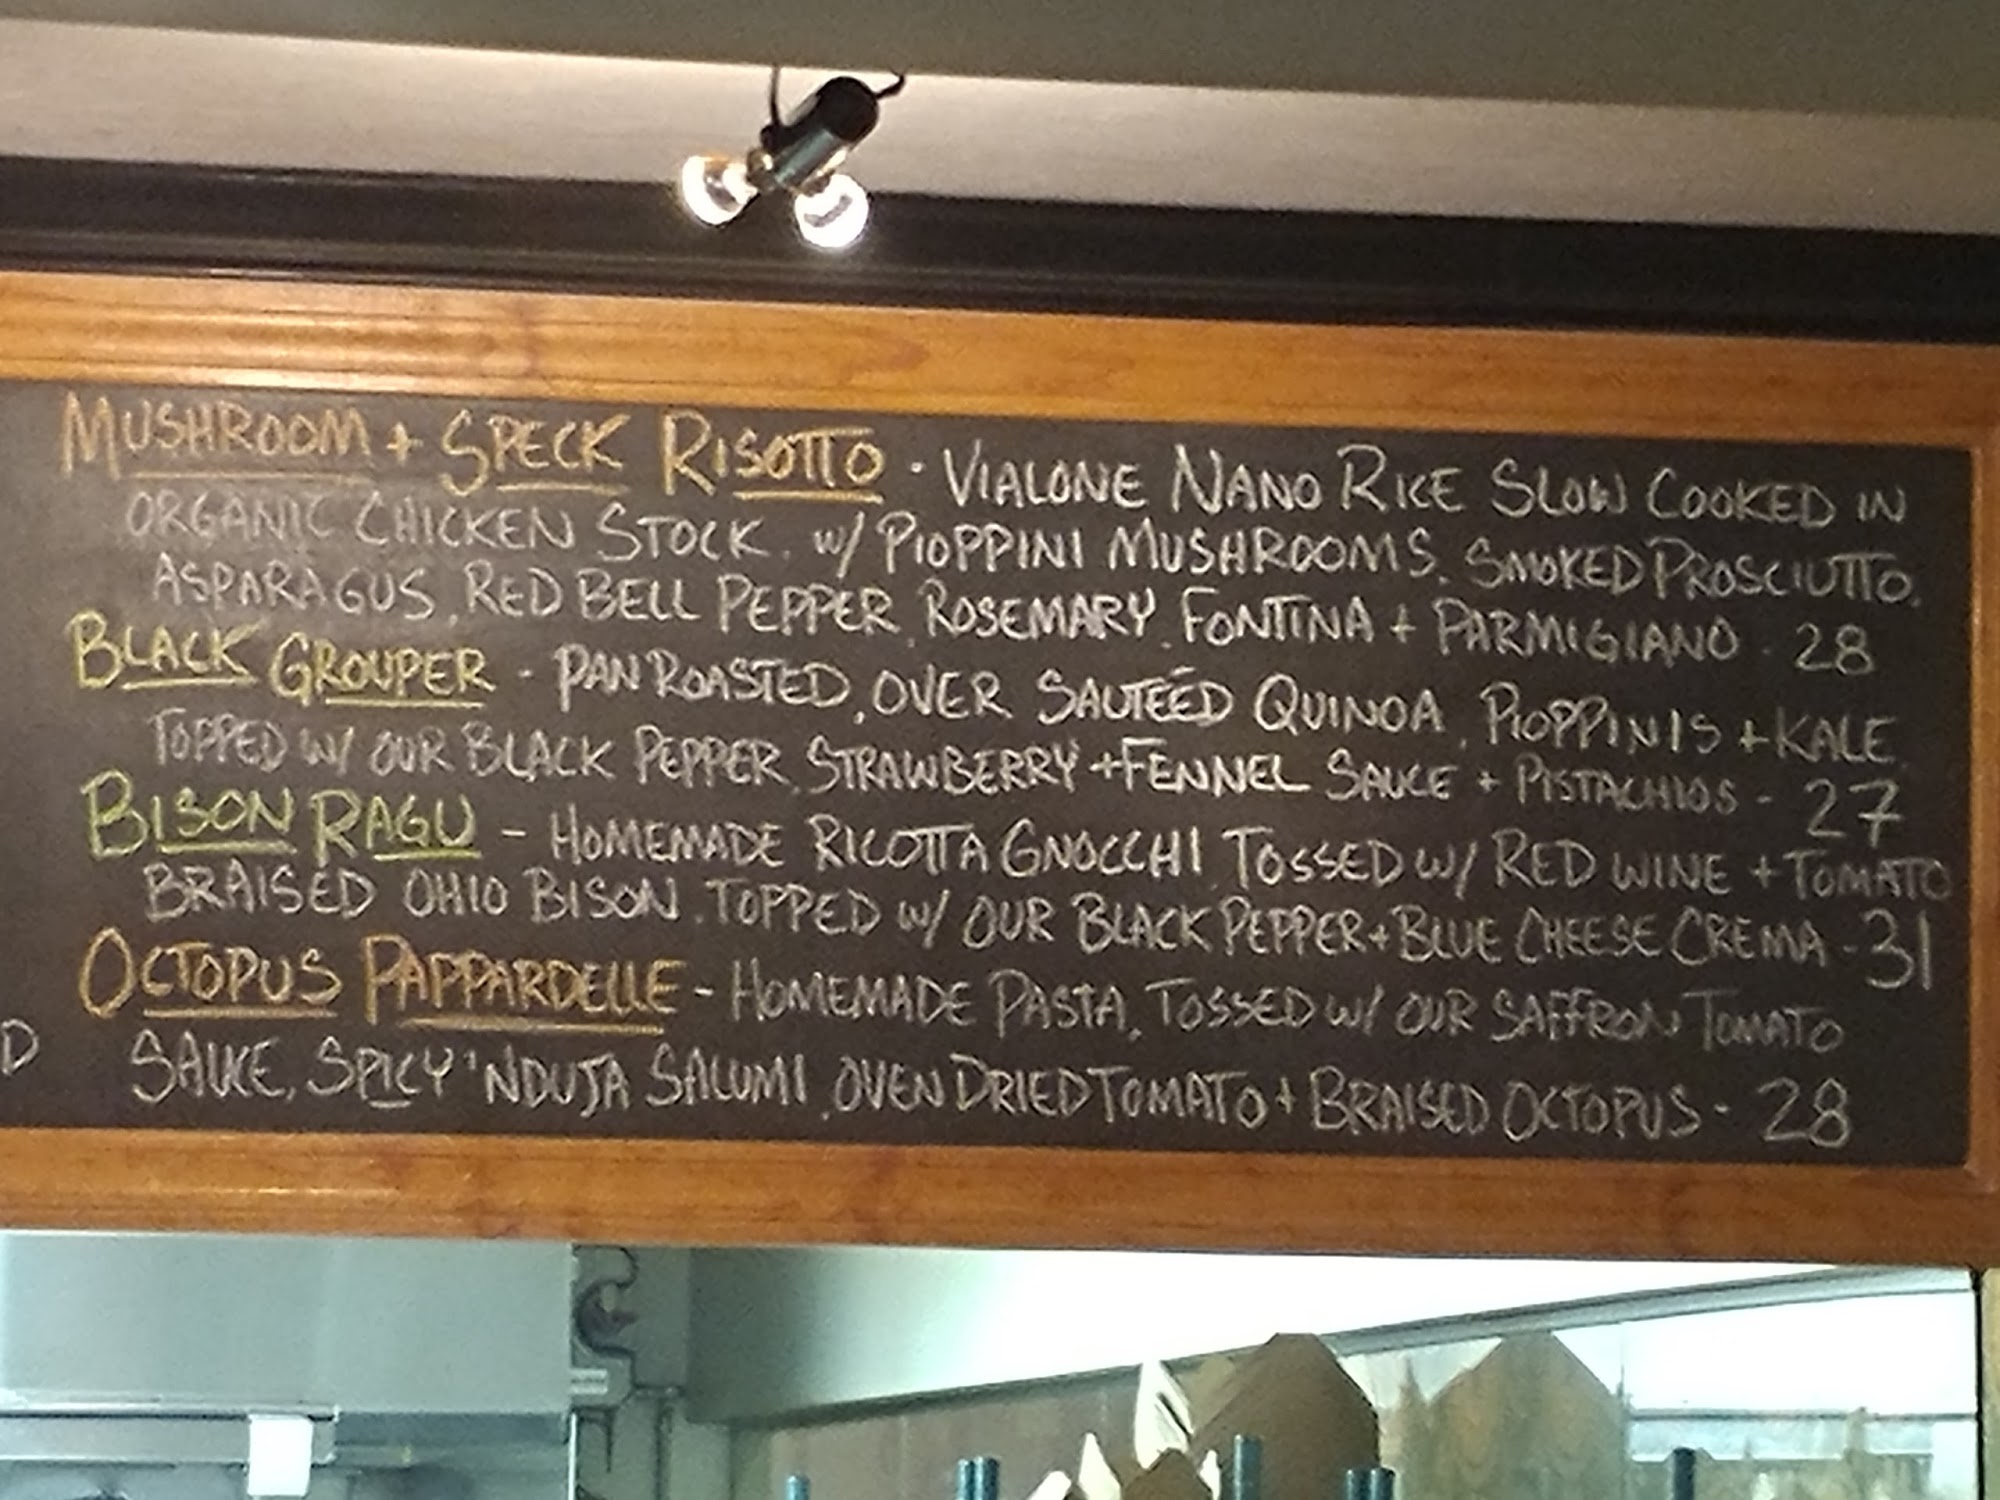 MUSHROOM + SPECK RISOTTO - VIALONE NANO RICE SLOW COOKED IN
ORGANIC CHICKEN STOCK. W/ PIOPPINI MUSHROOMS, SMOKED PROSCIUTTO,
ASPARAGUS, RED BELL PEPPER, ROSEMARY, FONTINA + PARMIGIANO - 28
BLACK GROUPER - PAN ROASTED, OVER SAUTÉED QUINOA, PIOPPINIS + KALE,
TOPPED W/ OUR BLACK PEPPER, STRAWBERRY + FENNEL SAUCE + PISTACHIOS - 27
BISON RAGU - HOMEMADE RICOTTA GNOCCHI, TOSSED W/ RED WINE + TOMATO
BRAISED OHIO BISON, TOPPED W/ OUR BLACK PEPPER + BLUE CHEESE CREMA - 31
OCTOPUS PAPPARDELLE - HOMEMADE PASTA, TOSSED W/ OUR SAFFRON TOMATO
D SAUCE, SPICY 'NDUJA SALUMI, OVEN DRIED TOMATO + BRAISED OCTOPUS - 28